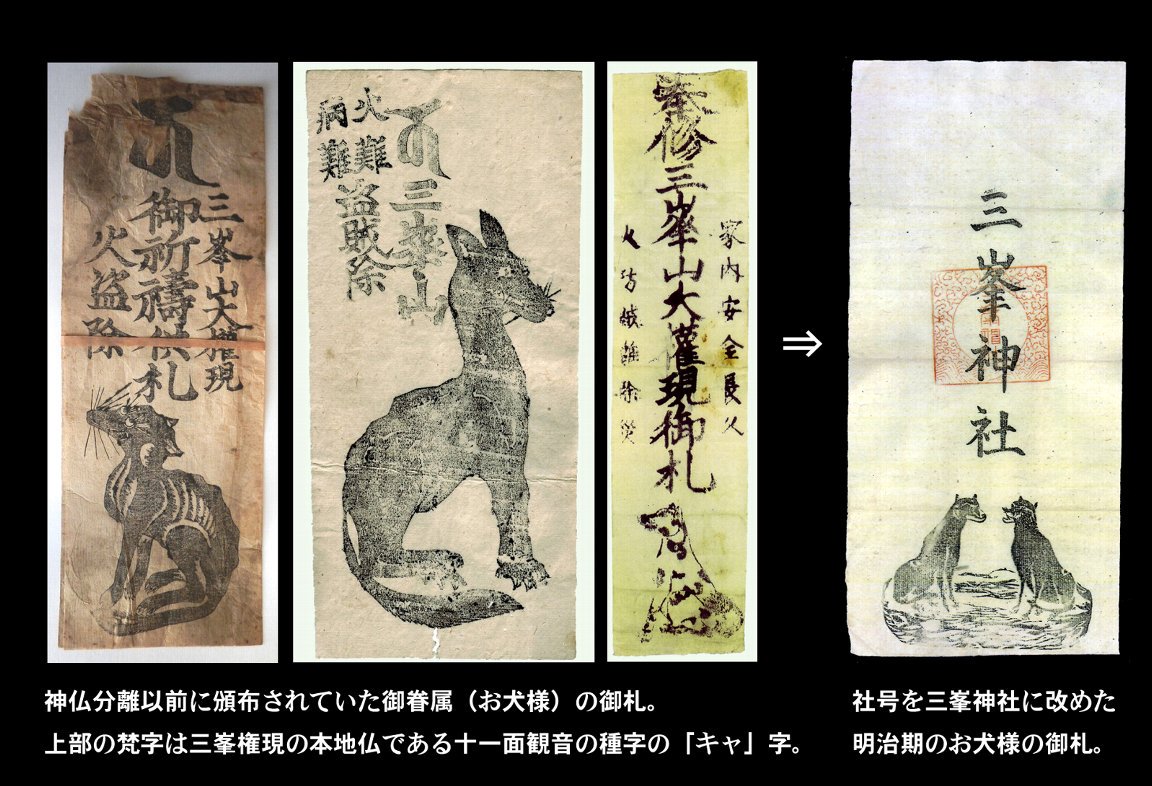 三峯山大権現
御祈禱供札
火盗除
三峯山
火難
病難
盗賊除
家内安全長久
奉修三峯山大權現御札
三峯神社
神仏分離以前に頒布されていた御眷属（お犬様）の御札。
上部の梵字は三峯権現の本地仏である十一面観音の種字の「キャ」字。
社号を三峯神社に改めた
明治期のお犬様の御札。